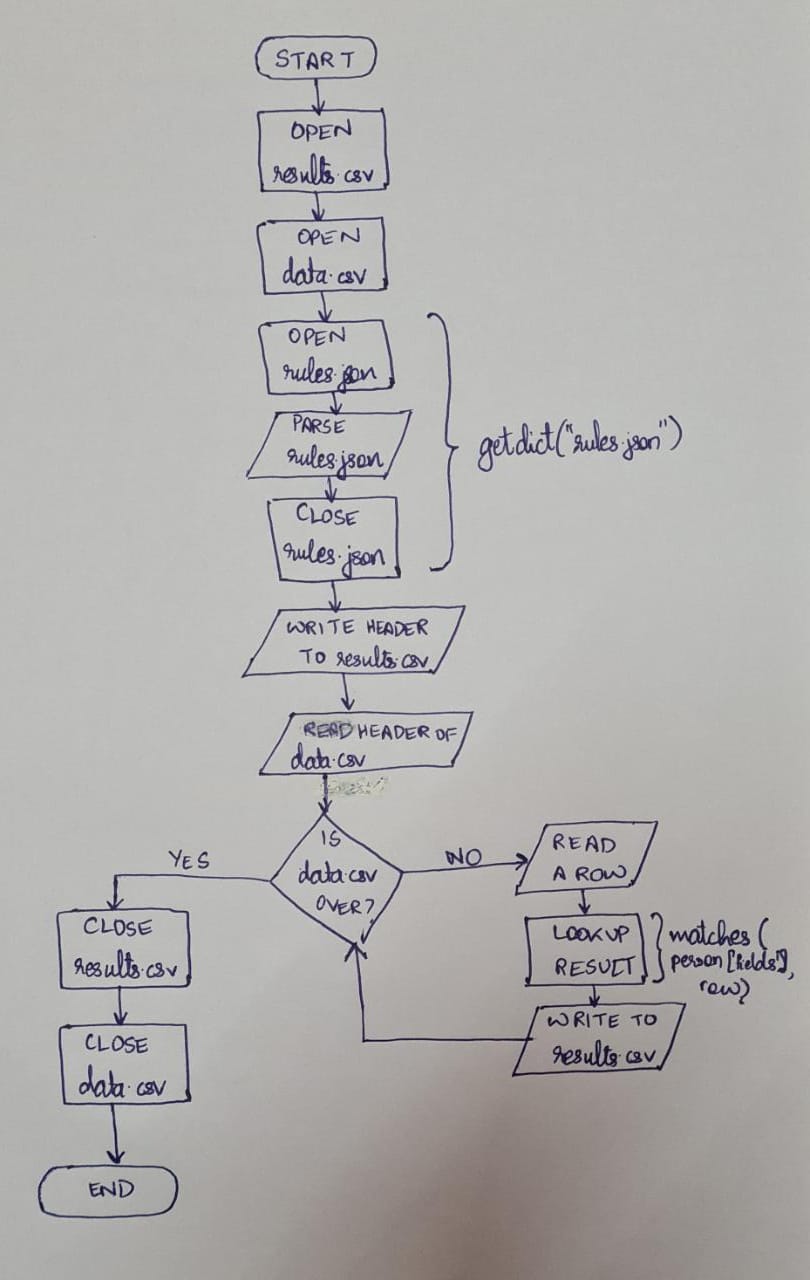 START
OPEN
results.csv
OPEN
data.csv
OPEN
rules.json
PARSE
rules.json
CLOSE
rules.json
getdict("rules.json")
WRITE HEADER
TO results.csv
READ HEADER OF
data.csv
IS
data.csv
OVER?
YES
NO
READ
A ROW
LOOKUP
RESULT
matches(
person[fields'],
row)
WRITE TO
results.csv
CLOSE
results.csv
CLOSE
data.csv
END